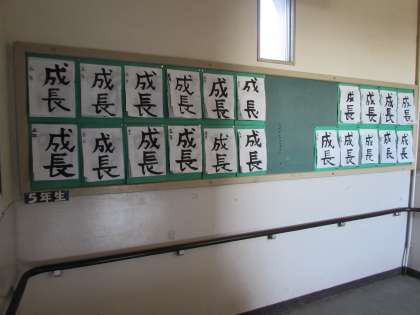 成長
成長
成長
成長
成長
成長
成長
成長
成長
成長
成長
成長
成長
成長
成長
成長
成長
成長
成長
成長
成長
5年生